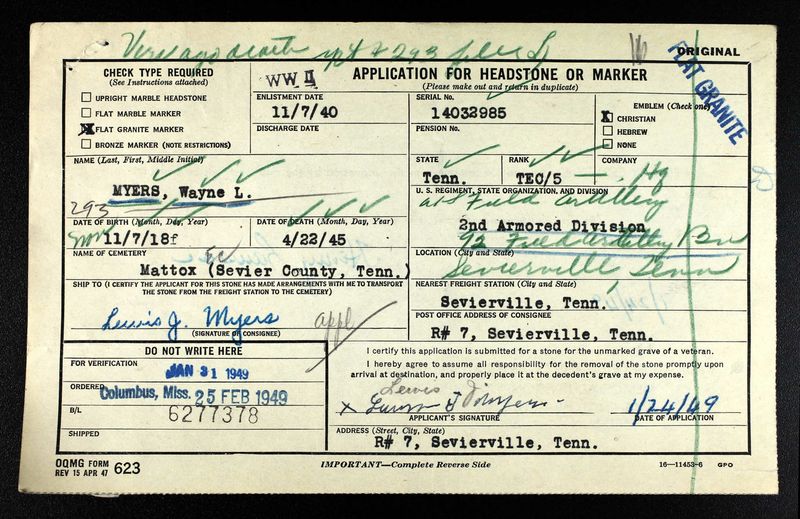 ORIGINAL
FLAT GRANITE
CHECK TYPE REQUIRED
(See Instructions attached)
UPRIGHT MARBLE HEADSTONE
FLAT MARBLE MARKER
X FLAT GRANITE MARKER
BRONZE MARKER (NOTE RESTRICTIONS)
WW II
APPLICATION FOR HEADSTONE OR MARKER
(Please make out and return in duplicate)
ENLISTMENT DATE
11/7/40
DISCHARGE DATE
SERIAL No.
14032985
PENSION No.
EMBLEM (Check one)
X CHRISTIAN
HEBREW
NONE
NAME (Last, First, Middle Initial)
MYERS, Wayne L.
293
STATE
Tenn.
RANK
TEC/5
COMPANY
Hq
U. S. REGIMENT, STATE ORGANIZATION, AND DIVISION
Field Artillery
2nd Armored Division
92 Field Artillery Bn
DATE OF BIRTH (Month, Day, Year)
11/7/18
DATE OF DEATH (Month, Day, Year)
4/22/45
NAME OF CEMETERY
Mattox (Sevier County, Tenn.)
LOCATION (City and State)
Sevierville, Tenn
SHIP TO (I CERTIFY THE APPLICANT FOR THIS STONE HAS MADE ARRANGEMENTS WITH ME TO TRANSPORT
THE STONE FROM THE FREIGHT STATION TO THE CEMETERY)
Lewis J. Myers
(SIGNATURE OF CONSIGNEE)
appl
NEAREST FREIGHT STATION (City and State)
Sevierville, Tenn.
POST OFFICE ADDRESS OF CONSIGNEE
R# 7, Sevierville, Tenn.
DO NOT WRITE HERE
FOR VERIFICATION
JAN 31 1949
ORDERED
Columbus, Miss. 25 FEB 1949
B/L
6277378
SHIPPED
I certify this application is submitted for a stone for the unmarked grave of a veteran.
I hereby agree to assume all responsibility for the removal of the stone promptly upon
arrival at destination, and properly place it at the decedent's grave at my expense.
Lewis
x
APPLICANT'S SIGNATURE
1/24/49
DATE OF APPLICATION
ADDRESS (Street, City, State)
R# 7, Sevierville, Tenn.
OQMG FORM
REV 15 APR 47 623
IMPORTANT—Complete Reverse Side
16—11453-6 GPO